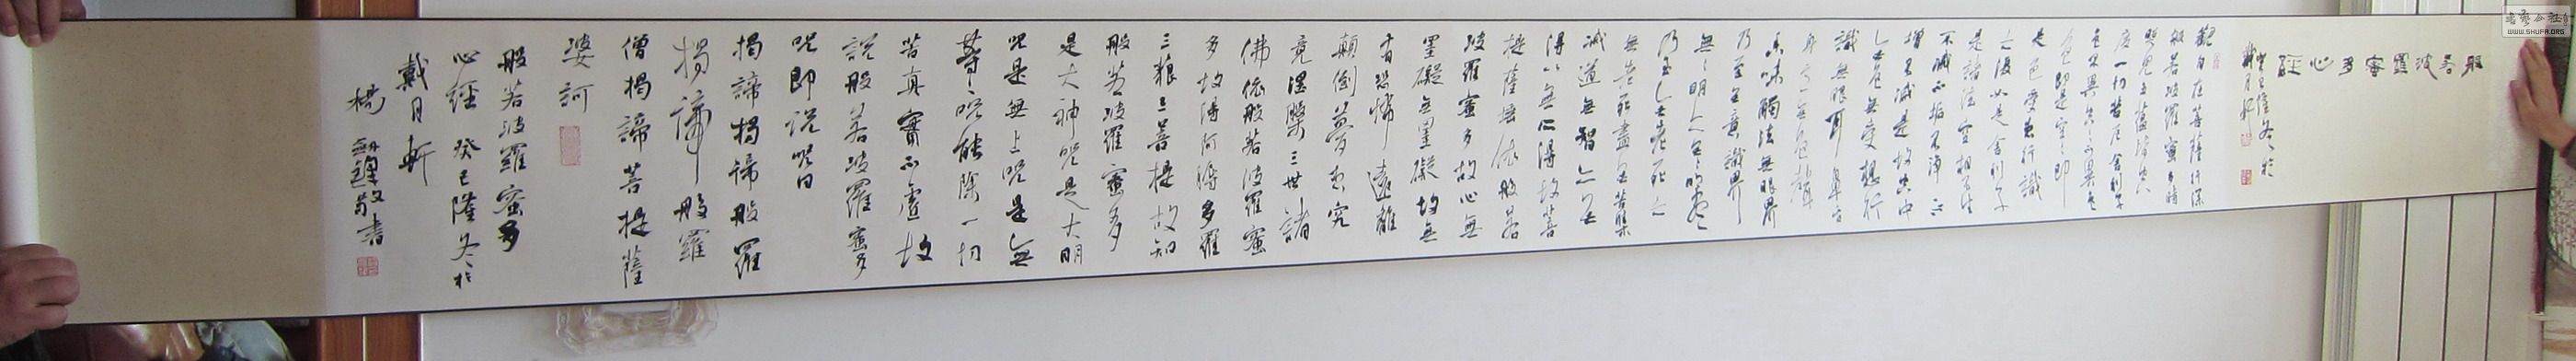 般若波羅蜜多心經
觀自在菩薩行深
般若波羅蜜多時
照見五蘊皆空
度一切苦厄舍利子
色不異空空不異色
色即是空空即
是色受想行識
亦復如是舍利子
是諸法空相不生
不滅不垢不淨不
增不減是故空中
無色無受想行
識無眼耳鼻舌
身意無色聲
香味觸法無眼界
乃至無意識界
無無明亦無無明盡
乃至無老死亦
無老死盡無苦集
滅道無智亦無
得以無所得故菩
提薩埵依般若
波羅蜜多故心無
罣礙無罣礙故無
有恐怖遠離
顛倒夢想究
竟涅槃三世諸
佛依般若波羅蜜
多故得阿耨多羅
三藐三菩提故知
般若波羅蜜多
是大神咒是大明
咒是無上咒是無
等等咒能除一切
苦真實不虛故
說般若波羅蜜多
咒即說咒曰
揭諦揭諦般羅
揭諦般羅
僧揭諦菩提薩
婆訶
般若波羅蜜多
心經 癸巳隆冬於
戴月軒
楊敬書
WWW.SHUFA.ORG